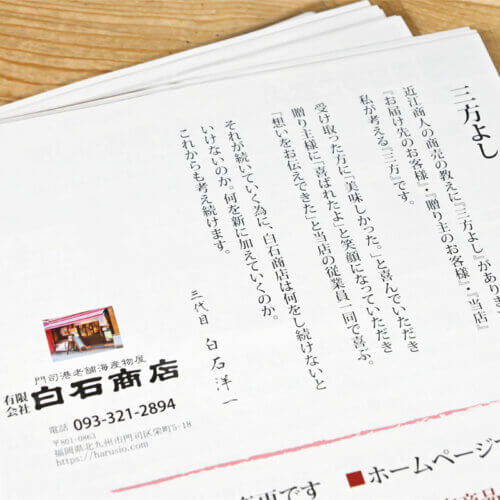 三方よし
近江商人の商売の教えに『三方よし』があります
『お届け先のお客様』・『贈り主のお客様』・『当店』
私が考える『三方』です。
受け取った方に「美味しかった。」と喜んでいただき
贈り主様に「喜ばれたよ」と笑顔になっていただき
「想いをお伝えできた」と当店の従業員一同で喜ぶ。
それが続いていく為に、白石商店は何をし続けないと
いけないのか。何を新に加えていくのか。
これからも考え続けます。
三代目 白石洋一
門司港老舗海産物屋
有限会社 白石商店
電話 093-321-2894
〒801-0863
福岡県北九州市門司区栄町5-18
https://harusio.com
■ホームページ
変更です